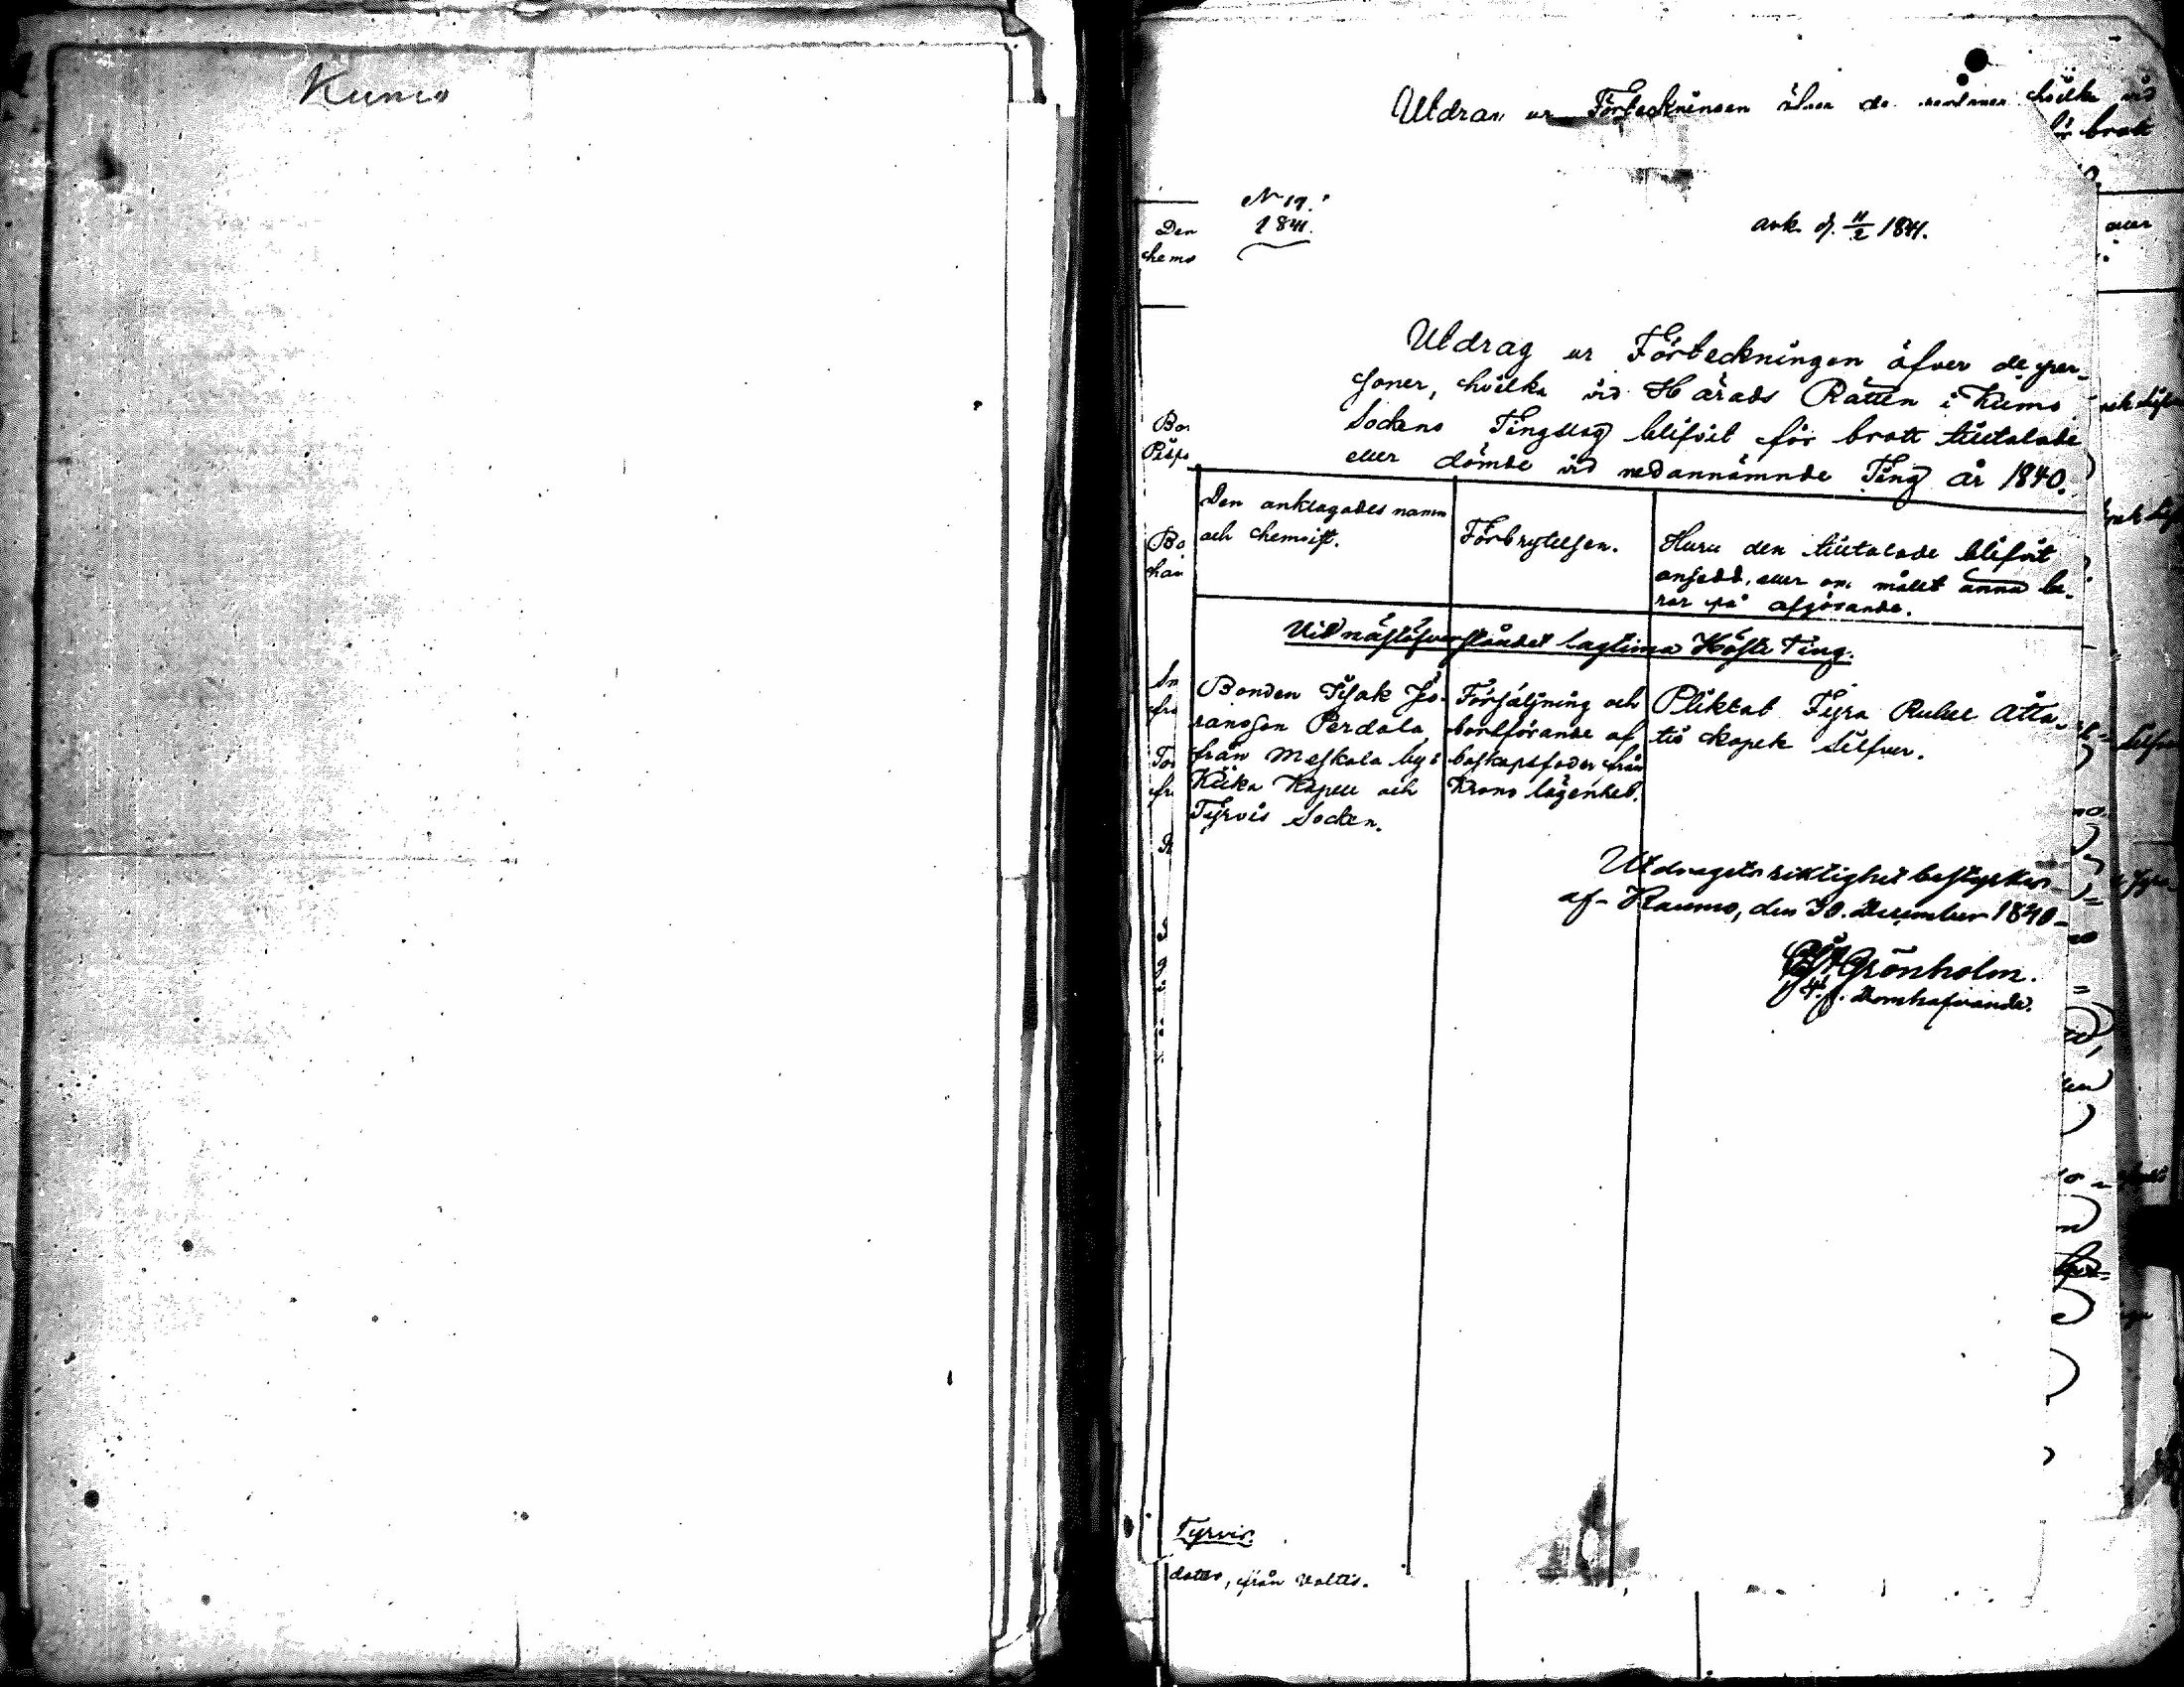 Kumo
Utdrag ur Förteckningen hvilka vid
för brott
N 19.
1841.
Den
hems
ank. d. 11/2 1841.
eller
Utdrag ur Förteckningen öfver de per-
soner, hvilka vid Härads Rätten i Kumo
Sockens Tingslag blifvit för brott tilltalade
eller dömde vid nedannämnde Ting år 1840.
Den anklagades namn
och hemvist.
Förbrytelsen.
Huru den tilltalade blifvit
ansedd, eller om målet ännu be-
ror på afgörande.
Vid näståfverståndet lagtima Höste Ting.
Bonden Isak Jö-
ransson Perdola,
från Meskala by i
Kiika Kapell och
Tyrvis Socken.
Försäljning och
bortförande af
boskapsfoder från
Krono lägenhet.
Pliktat Fyra Rubel Åtta-
tio kopek Silfver.
Utdragets riktighet bestyrker
af- Raumo, den 30. December 1840-
Grönholm.
Domhafvande.
Tyrvis.
dotter, från Valtis.